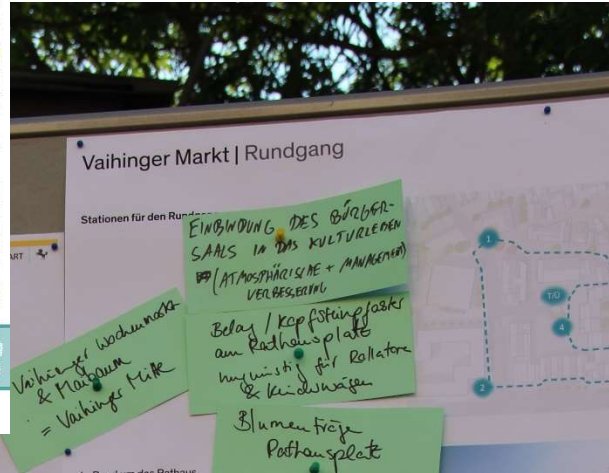 Vaihinger Markt | Rundgang
Stationen für den
EINBINDUNG DES BÜRGER-
SAALS IN DAS KULTURLEBEN
(ATMOSPHÄRISCHE + MANAGEMENT)
VERBESSERUNG
ART
1
T/Ü
4
2
Belag / Kopfsteinpflaster
am Rathausplatz
ungünstig für Rollatore
& Kinderwägen
Vaihinger Wochenmarkt
& Maibaum
= Vaihinger Mitte
Blumentröge
Rathausplatz
Rund um das Rathaus